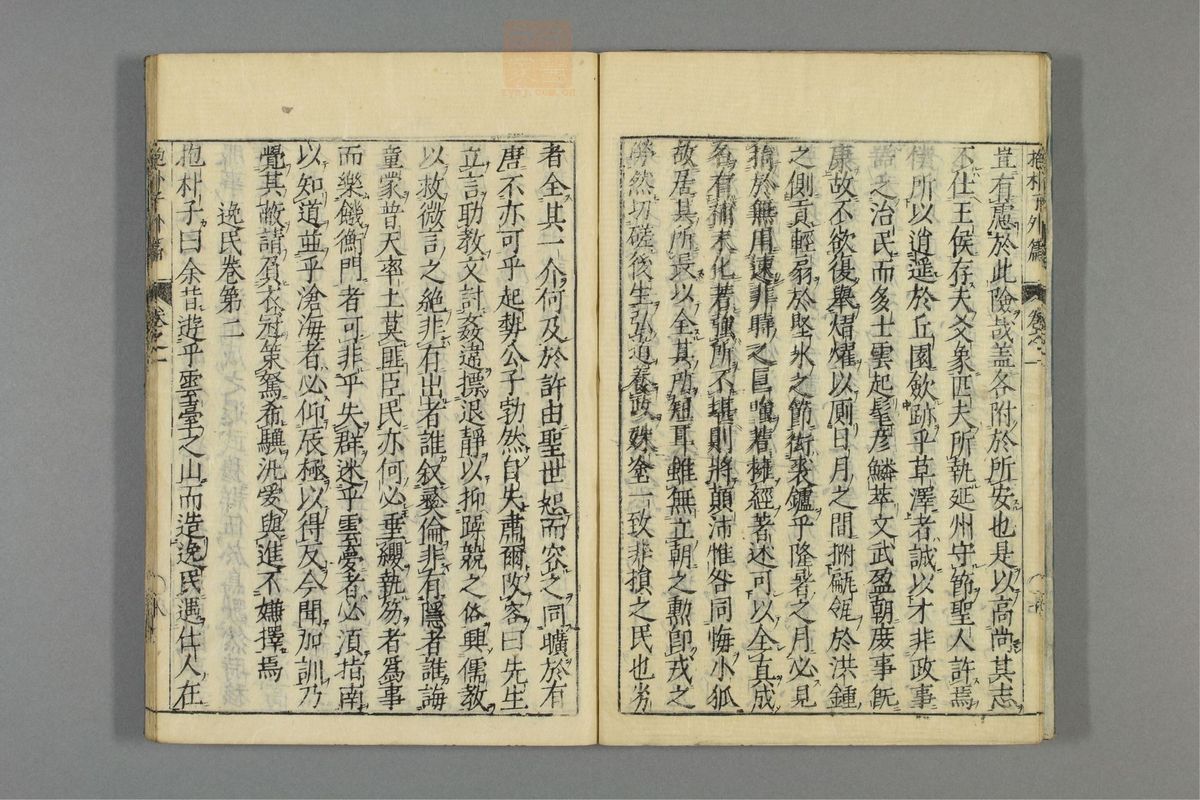 豈有慮於此險哉盖各附於所安也是以高尚其志
不仕王侯存夫爻象匹夫所執延州守節聖人許焉
僕所以逍遥於丘園歛跡乎草澤者誠以才非政事
器乏治民而多士雲起髦彦鱗萃文武盈朝庶事旣
康故不欲復舉熠燿以厠日月之間拊甂瓴於洪鍾
之側貢輕扇於堅氷之節衒裘鑪乎隆暑之月必見
捐於無用速非時之巨嗤若擁經著述可以全真成
名有補末化若強所不堪則將顛沛惟咎同悔小狐
故居其所長以全其所短耳雖無立朝之勲即戎之
勞然切磋後生弘道養正殊塗一致非損之民也劣
者全其一介何及於許由聖世恕而容之同曠於有
唐不亦可乎起勢公子勃然自失肅爾改容曰先生
立言助教文討姦違摽退靜以抑躁競之俗興儒教
以救微言之絶非有出者誰叙彝倫非有隱者誰誨
童蒙普天率土莫匪臣民亦何必垂纓執笏者爲事
而樂饑衡門者可非乎失群迷乎雲夢者必須指南
以知道並乎滄海者必仰辰極以得反今聞加訓乃
覺其蔽請負衣冠策駑希驥汎愛與進不嫌擇焉
逸民卷第二
抱朴子曰余昔遊乎雲臺之山而造逸民遇仕人在
抱朴子外篇
卷之一